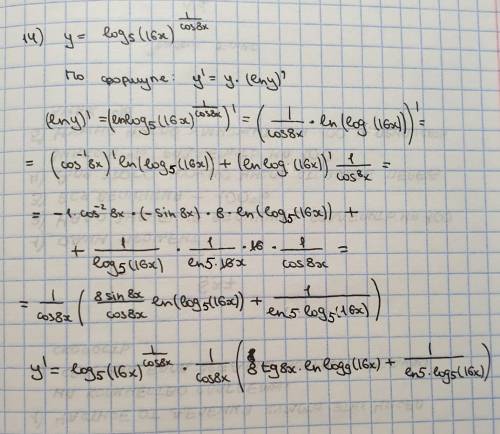 14) y = log₅(16x)^(1/cos8x)
По формуле: y' = y · (lny)'
(lny)' = (ln log₅(16x)^(1/cos8x))' = (1/cos8x · ln(log (16x)))' =
= (cos⁻¹8x)' ln(log₅(16x)) + (ln log (16x))' 1/cos8x =
= -1·cos⁻²8x·(-sin8x)·8·ln(log₅(16x)) +
+ 1/log₅(16x) · 1/ln5·16x · 16 · 1/cos8x =
= 1/cos8x (8sin8x/cos8x ln(log₅(16x)) + 1/ln5 log₅(16x))
y' = log₅(16x)^(1/cos8x) · 1/cos8x (8 tg8x · ln log₉(16x) + 1/ln5·log₅(16x))